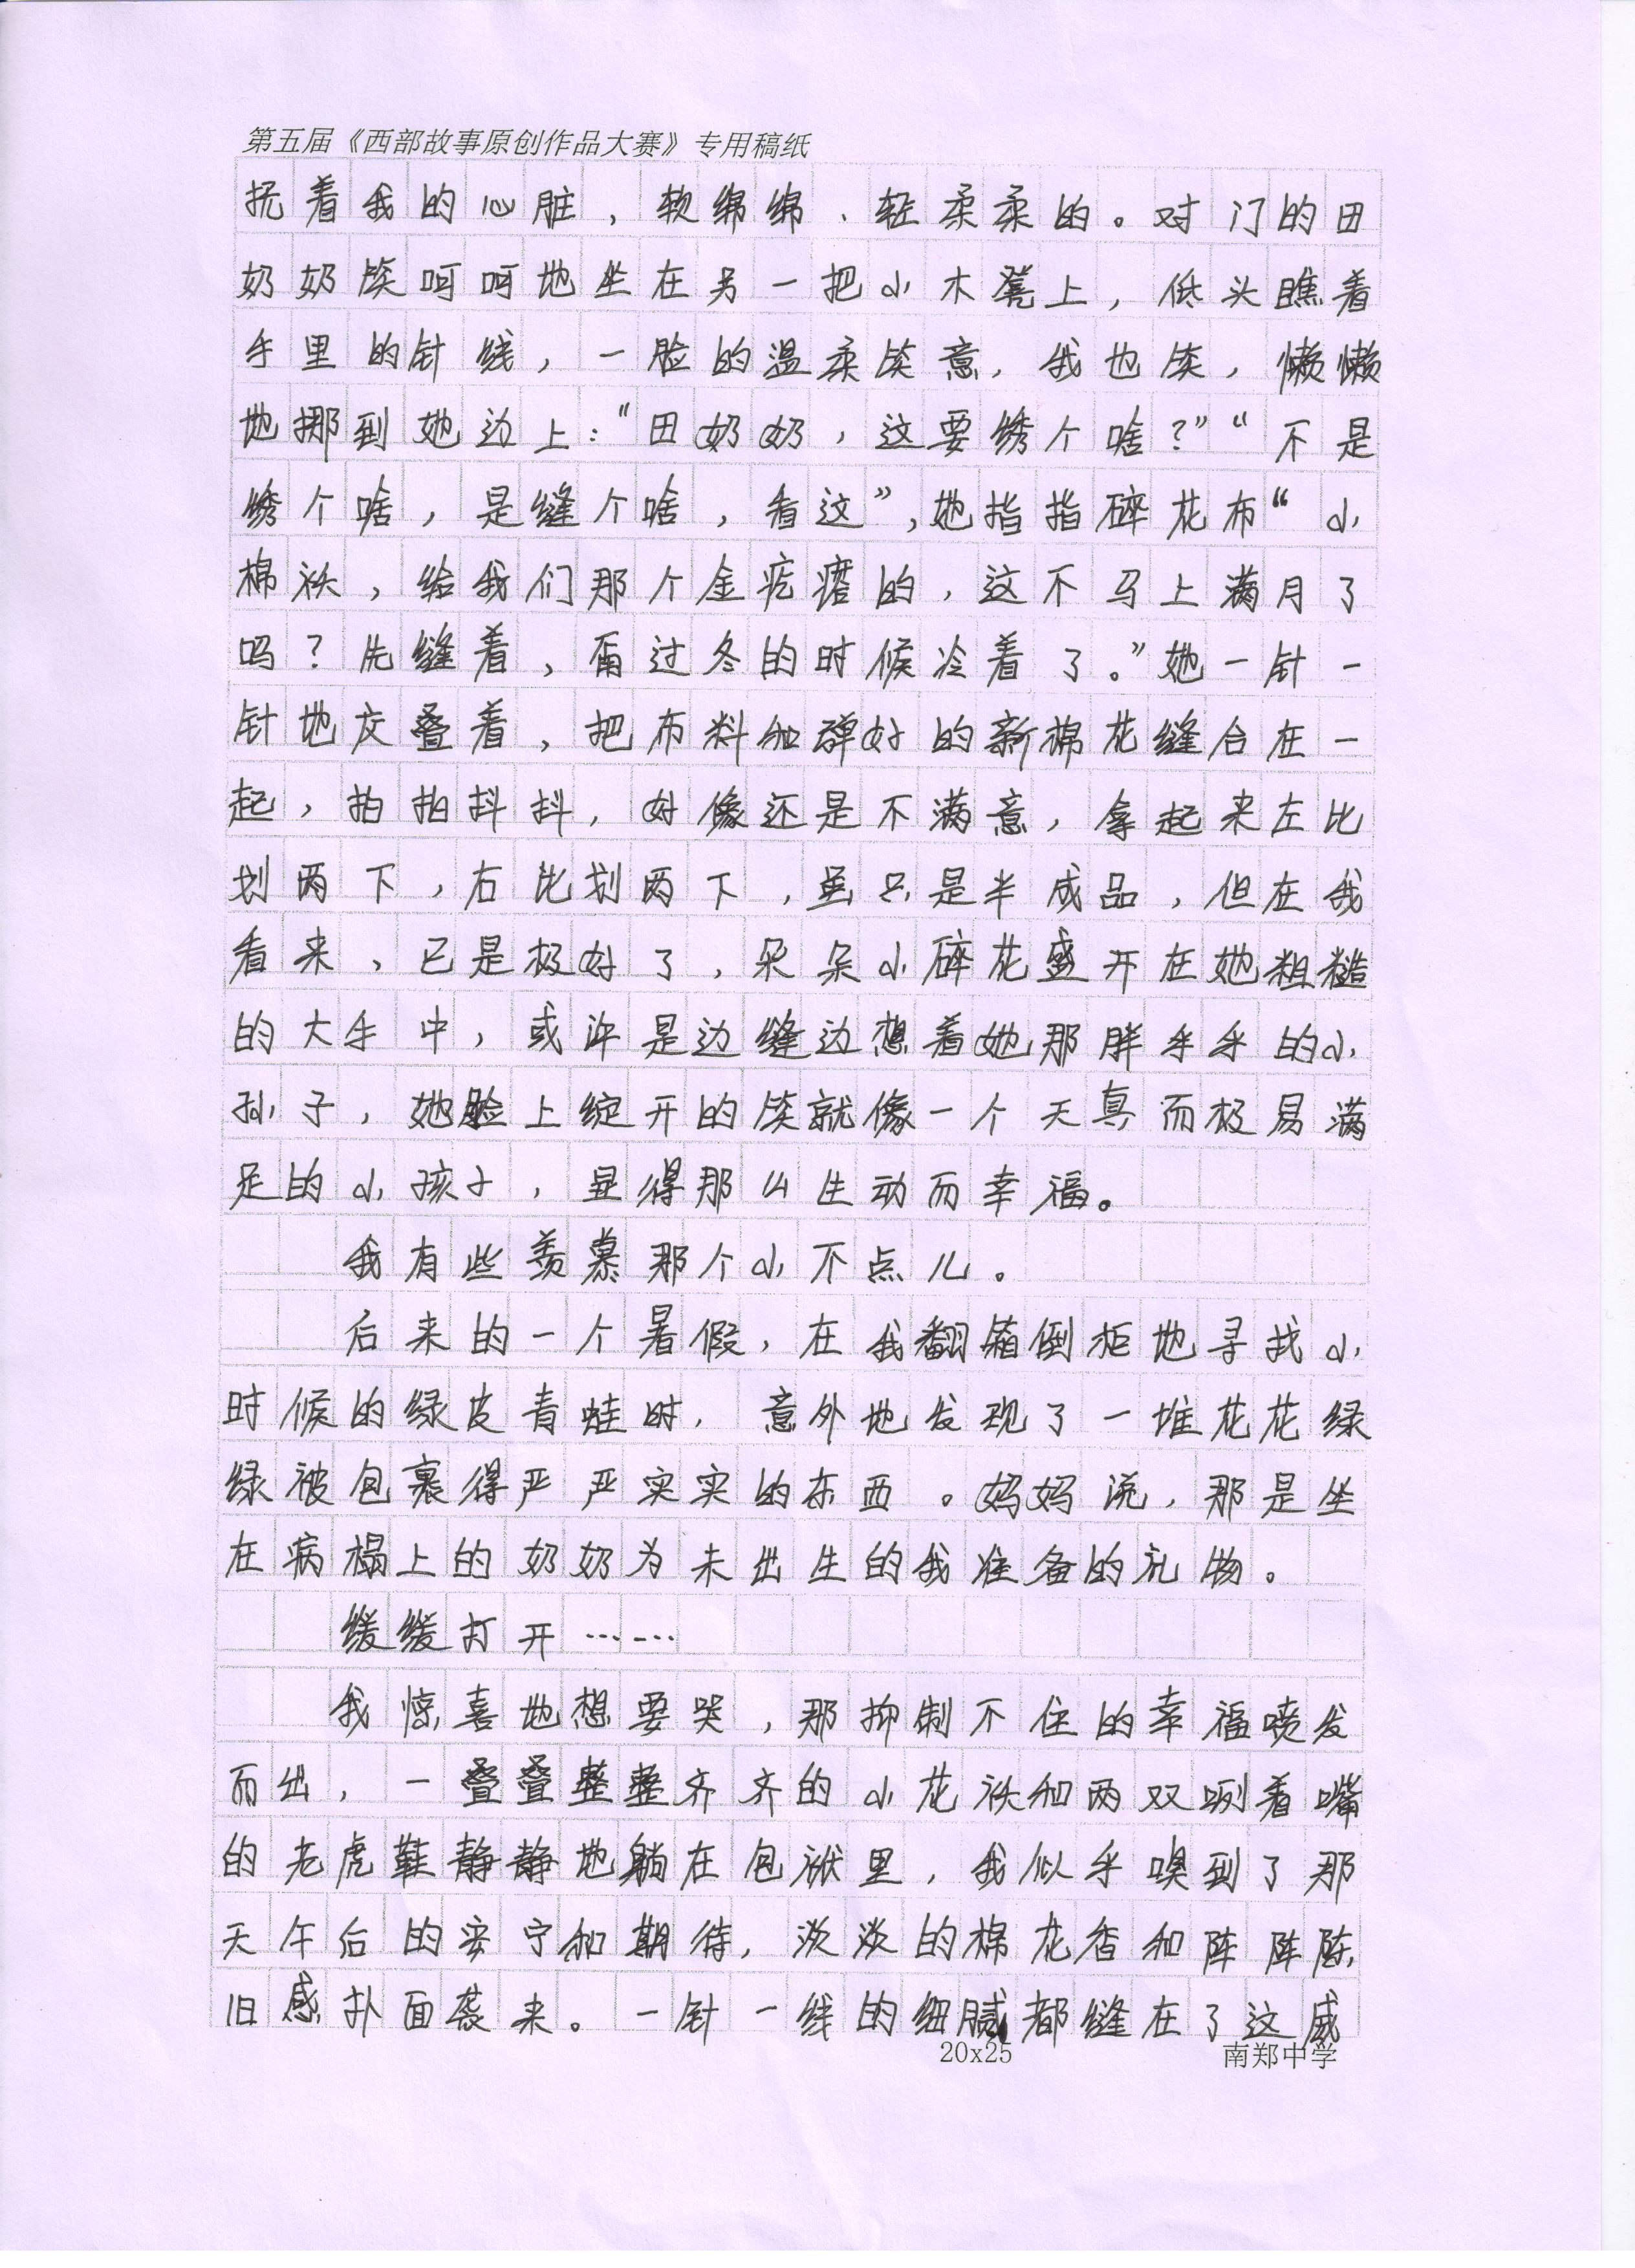 第五届《西部故事原创作品大赛》专用稿纸
抚着我的心脏，软绵绵、轻柔柔的。对门的田
奶奶笑呵呵地坐在另一把小木凳上，低头瞧着
手里的针线，一脸的温柔笑意，我也笑，懒懒
地挪到她边上：“田奶奶，这要绣个啥？”“不是
绣个啥，是缝个啥，看这”，她指指碎花布“小
棉袄，给我们那个金疙瘩的，这不马上满月了
吗？先缝着，甭过冬的时候冷着了。”她一针一
针地交叠着，把布料和弹好的新棉花缝合在一
起，拍拍抖抖，好像还是不满意，拿起来左比
划两下，右比划两下，虽只是半成品，但在我
看来，已是极好了，朵朵小碎花盛开在她粗糙
的大手中，或许是边缝边想着她那胖乎乎的小
孙子，她脸上绽开的笑就像一个天真而极易满
足的小孩子，显得那么生动而幸福。
我有些羡慕那个小不点儿。
后来的一个暑假，在我翻箱倒柜地寻找小
时候的绿皮青蛙时，意外地发现了一堆花花绿
绿被包裹得严严实实的东西。妈妈说，那是坐
在病榻上的奶奶为未出生的我准备的礼物。
缓缓打开……
我惊喜地想要哭，那抑制不住的幸福喷发
而出，一叠叠整整齐齐的小花袄和两双咧着嘴
的老虎鞋静静地躺在包袱里，我似乎嗅到了那
天午后的安宁和期待，淡淡的棉花香和阵阵陈
旧感扑面袭来。一针一线的细腻都缝在了这威
20x25 南郑中学